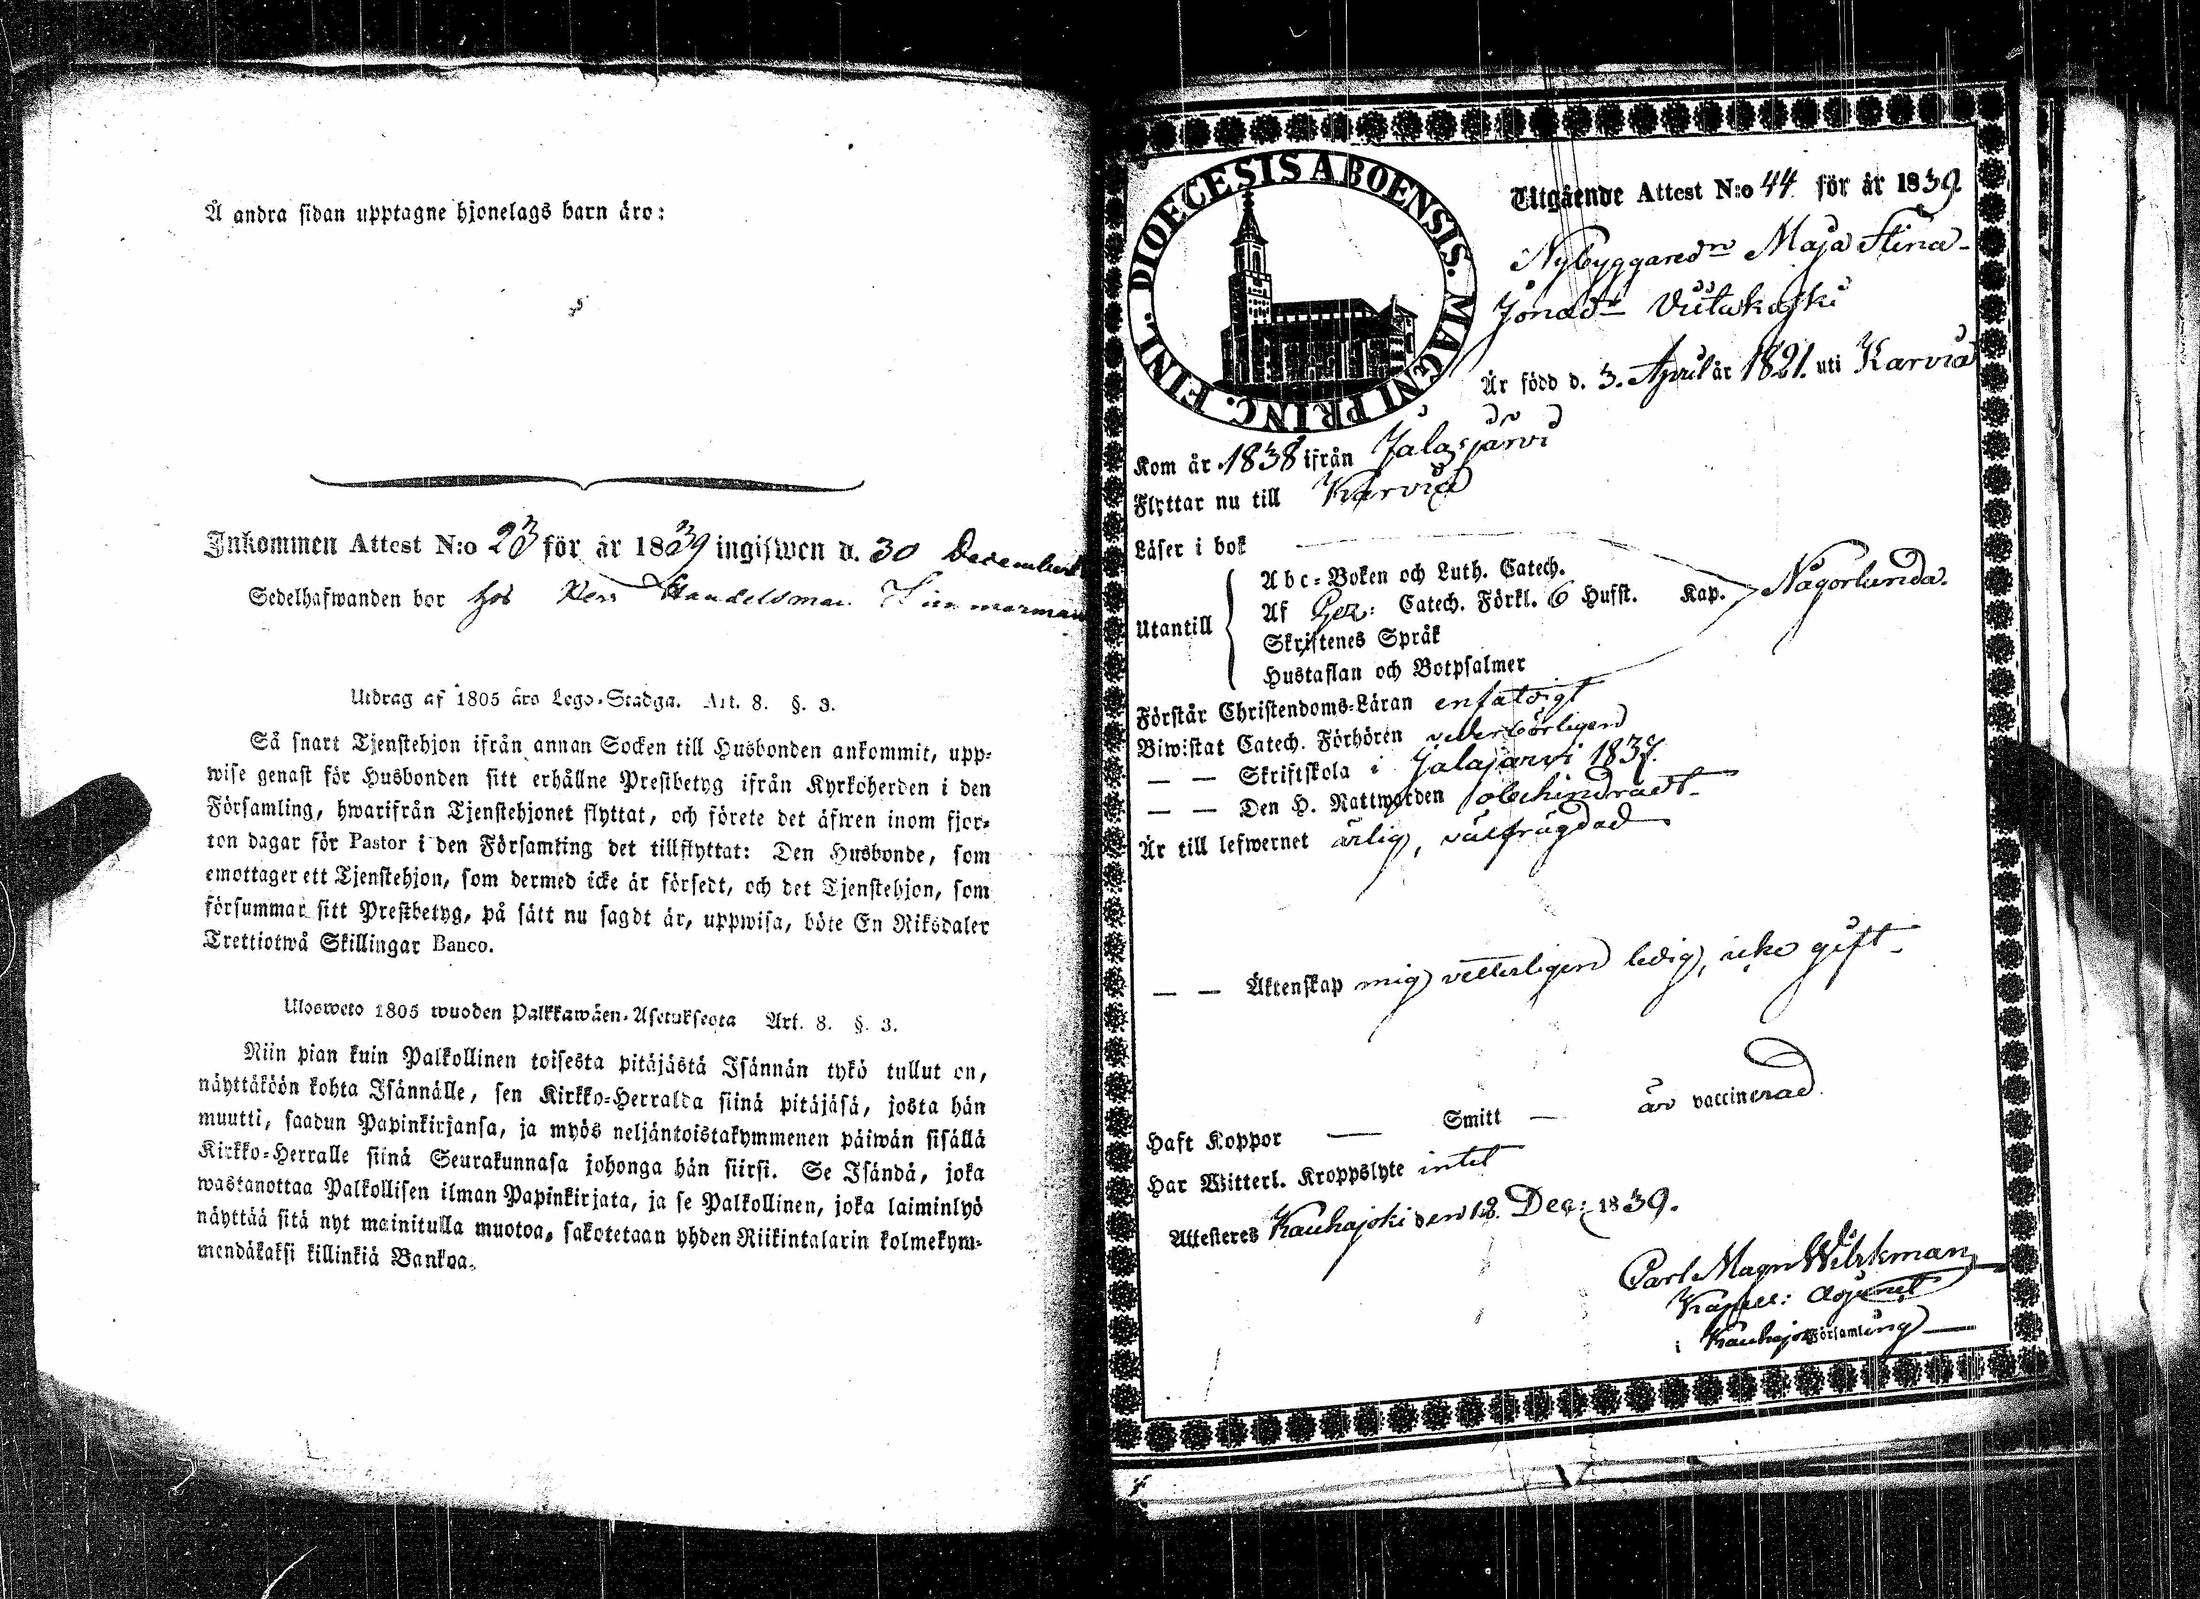 Å andra sidan upptagne hjonelags barn äro:
Inkommen Attest N:o 23 för år 1839 ingifwen d. 30 December
Sedelhafwanden bor hos Herr Handelsman Timmerman
Utdrag af 1805 års Lego-Stadga. Art. 8. §. 3.
Så snart Tjenstehjon ifrån annan Socken till Husbonden ankommit, upp-
wise genast för Husbonden sitt erhållne Prestbetyg ifrån Kyrkoherden i den
Församling, hwarifrån Tjenstehjonet flyttat, och förete det äfwen inom fjor-
ton dagar för Pastor i den Församling det tillflyttat: Den Husbonde, som
emottager ett Tjenstehjon, som dermed icke är försedt, och det Tjenstehjon, som
försummar sitt Prestbetyg, på sätt nu sagdt är, uppwisa, böte En Riksdaler
Trettiotwå Skillingar Banco.
Ulosweto 1805 wuoden Palkkawäen-Asetuksesta Art. 8. §. 3.
Niin pian kuin Palkollinen toisesta pitäjästä Isännän tykö tullut on,
näyttäköön kohta Isännälle, sen Kirkko-Herralda siinä pitäjäsä, josta hän
muutti, saadun Papinkirjansa, ja myös neljäntoistakymmenen päiwän sisällä
Kirkko-Herralle siinä Seurakunnasa johonga hän siirsi. Se Isändä, joka
wastanottaa Palkollisen ilman Papinkirjata, ja se Palkollinen, joka laiminlyö
näyttää sitä nyt mainitulla muotoa, sakotetaan yhden Riikintalarin kolmekym-
mendäkaksi killinkiä Bankoa.
DIOECESIS ABOENSIS. MAGNI PRINC. FINL.
Utgående Attest N:o 44 för år 1839
Nybyggaredn Maja Stina
Jonadr
Är född d. 3. April år 1821. uti Karvia
Kom år 1838 ifrån Jalasjärvi
Flyttar nu till Karvia
Läser i bok
Utantill
Abc-Boken och Luth. Catech.
Af Gez: Catech. Förkl. 6 Hufst. Kap. Någorlunda.
Skriftenes Språk
Hustaflan och Botpsalmer
Förstår Christendoms-Läran enfaldigt
Biwistat Catech. Förhören vederbörligen
— — Skriftskola i Jalasjärvi 1837.
— — Den H. Nattwarden obehindradt
Är till lefwernet ärlig, välfrägdad
— — Äktenskap mig vetterligen ledig, icke gift
Haft Koppor — Smitt — är vaccinerad.
Har Witterl. Kroppslyte intet
Attesteres Kauhajoki den 18. Dec: 1839.
Carl Magn Wirkman
Kapell: Adjunct
i Kauhajoki Församling